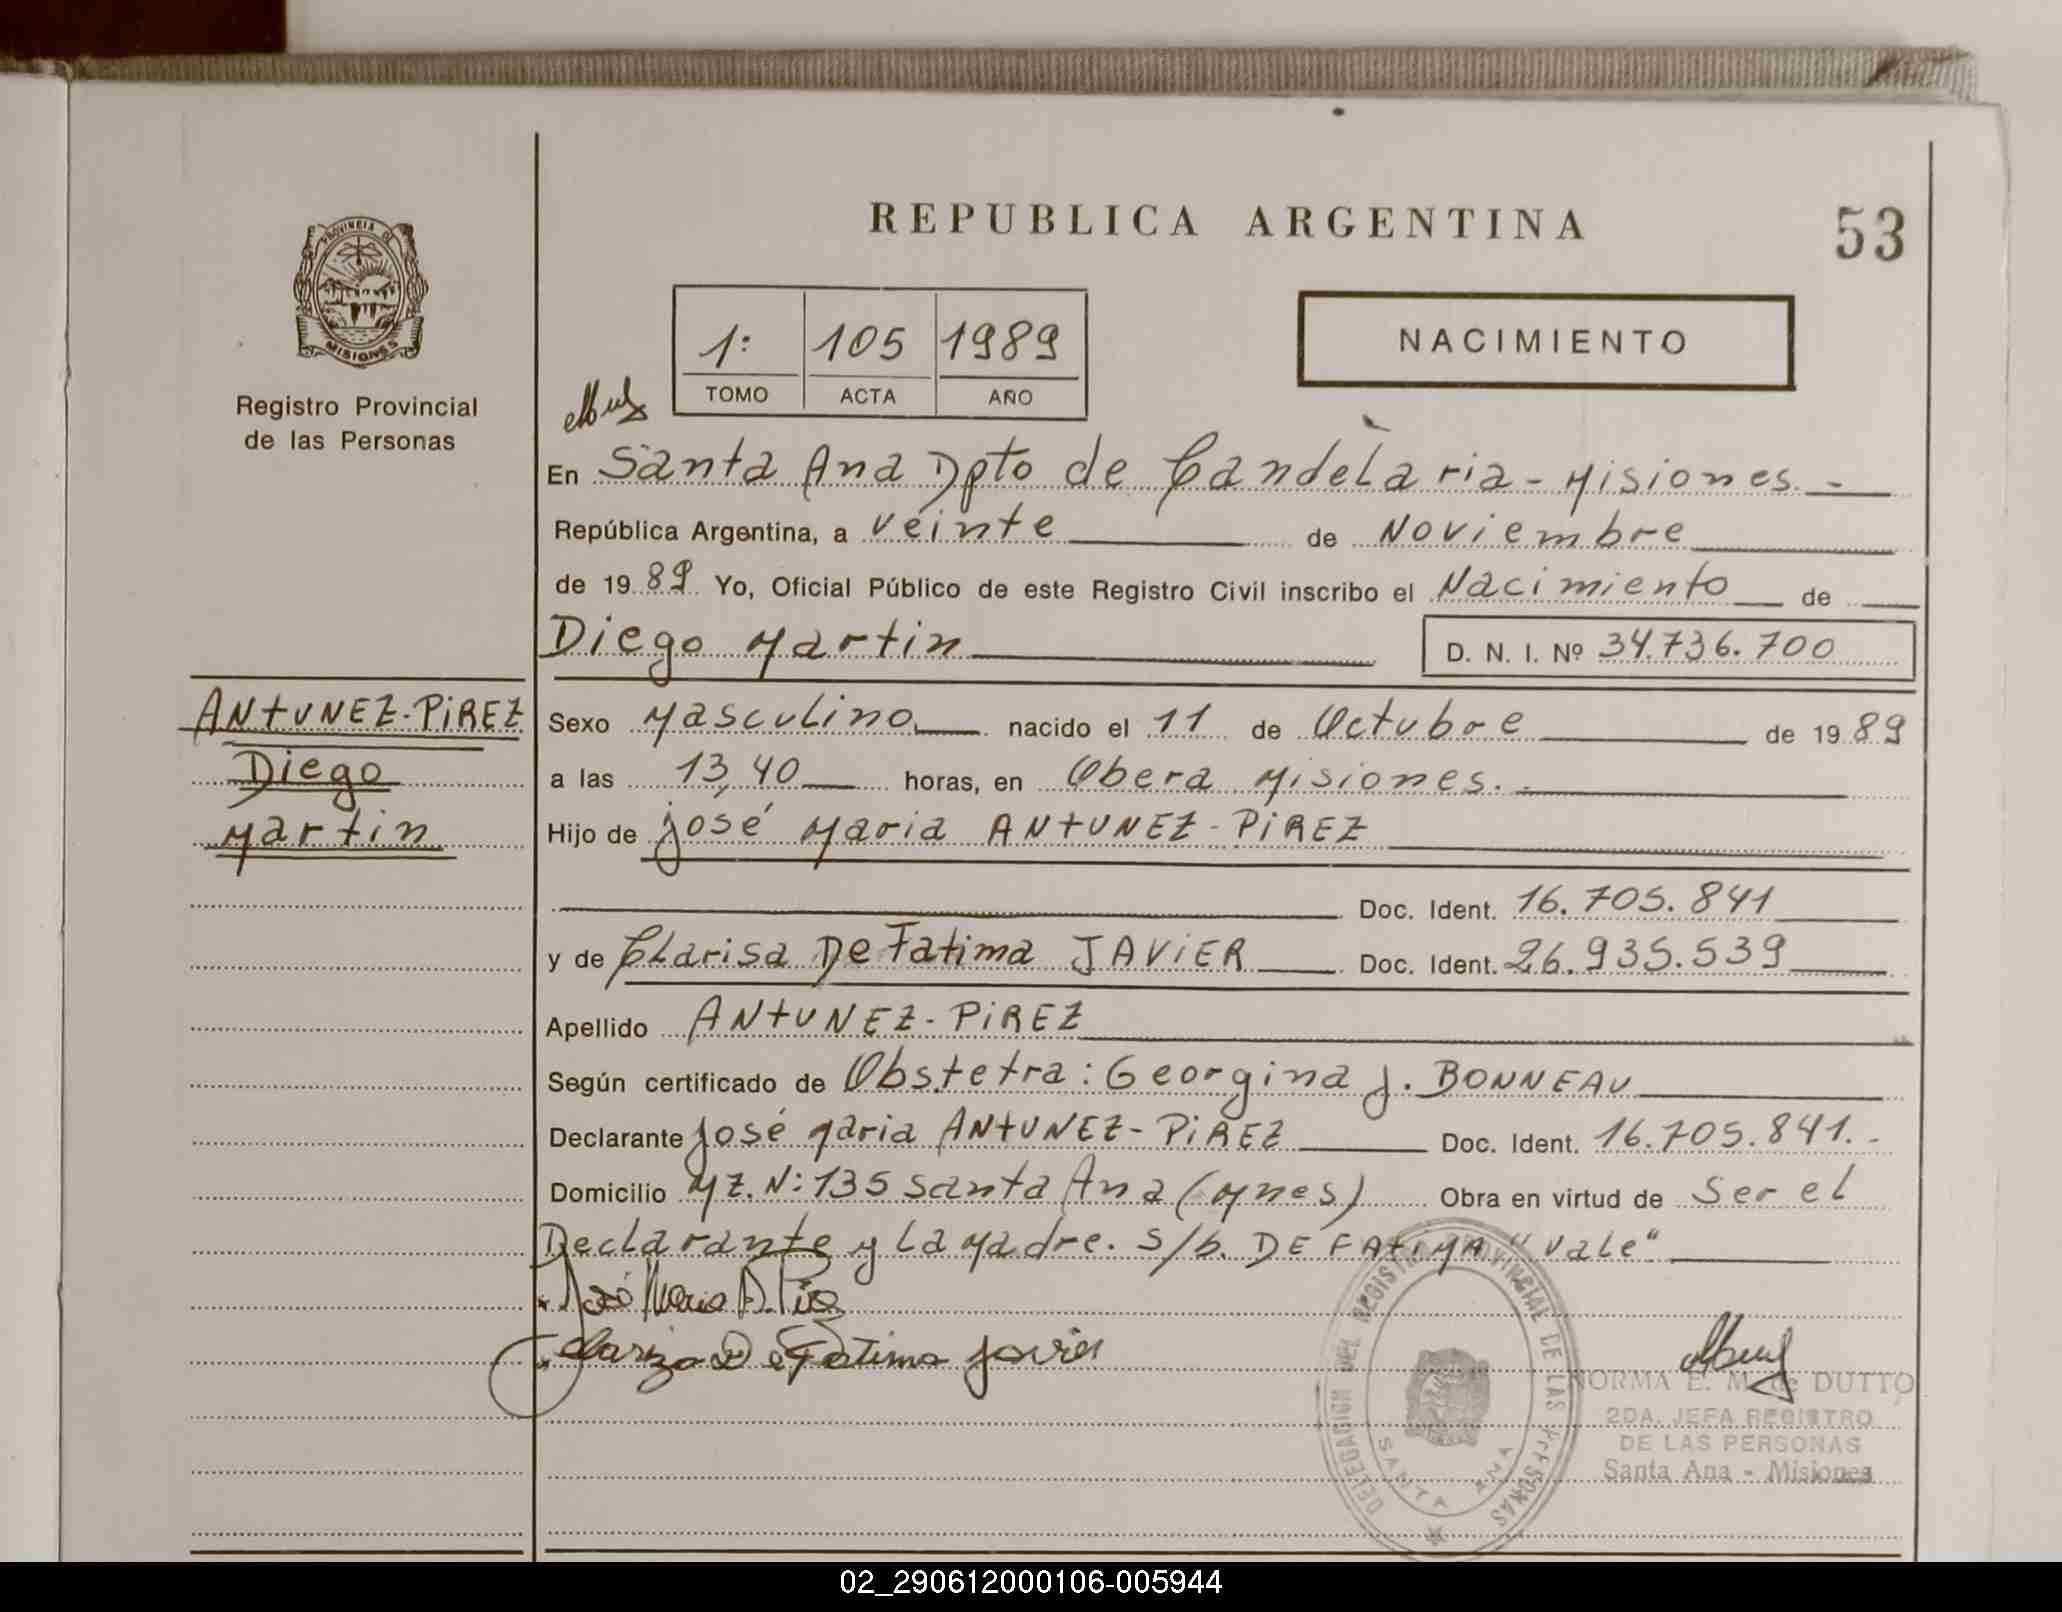 REPUBLICA ARGENTINA
53
PROVINCIA DE
MISIONES
Registro Provincial
de las Personas
1: 105 1989
TOMO ACTA AÑO
NACIMIENTO
En Santa Ana Dpto de Candelaria - Misiones. -
República Argentina, a veinte de Noviembre
de 19 89 Yo, Oficial Público de este Registro Civil inscribo el Nacimiento de
Diego Martin D. N. I. Nº 34.736.700
ANTUNEZ-PIREZ
Diego
Martin
Sexo Masculino nacido el 11 de Octubre de 19 89
a las 13,40 horas, en Obera Misiones. -
Hijo de José Maria ANTUNEZ-PIREZ
Doc. Ident. 16.705.841
y de Clarisa De Fatima JAVIER Doc. Ident. 26.935.539
Apellido ANTUNEZ-PIREZ
Según certificado de Obstetra: Georgina J. BONNEAU
Declarante José Maria ANTUNEZ-PIREZ Doc. Ident. 16.705.841.-
Domicilio MZ. N: 135 Santa Ana (Mnes) Obra en virtud de Ser el
Declarante y La Madre. S/b. DE FATIMA "Vale"
José Maria A. Pirez
Clariza De Fatima Javier
DELEGACION DEL REGISTRO PROVINCIAL DE LAS PERSONAS
SANTA ANA
NORMA E. M. de DUTTO
2DA. JEFA REGISTRO
DE LAS PERSONAS
Santa Ana - Misiones
02_290612000106-005944